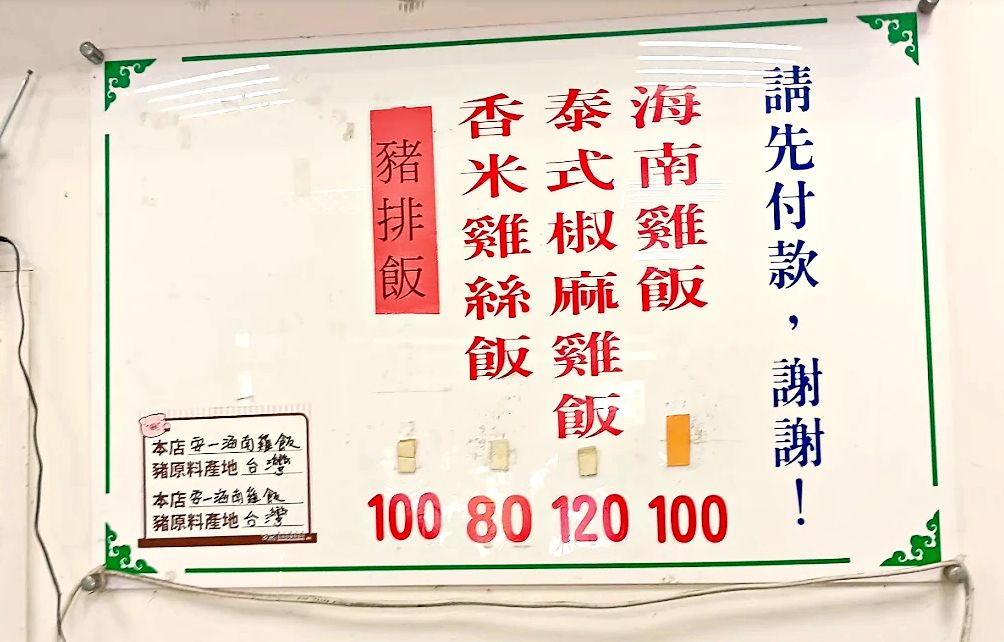 請先付款，謝謝！
海南雞飯
100
泰式椒麻雞飯
120
香米雞絲飯
80
豬排飯
100
本店安一海南雞飯
豬原料產地台灣
本店安一海南雞飯
豬原料產地台灣